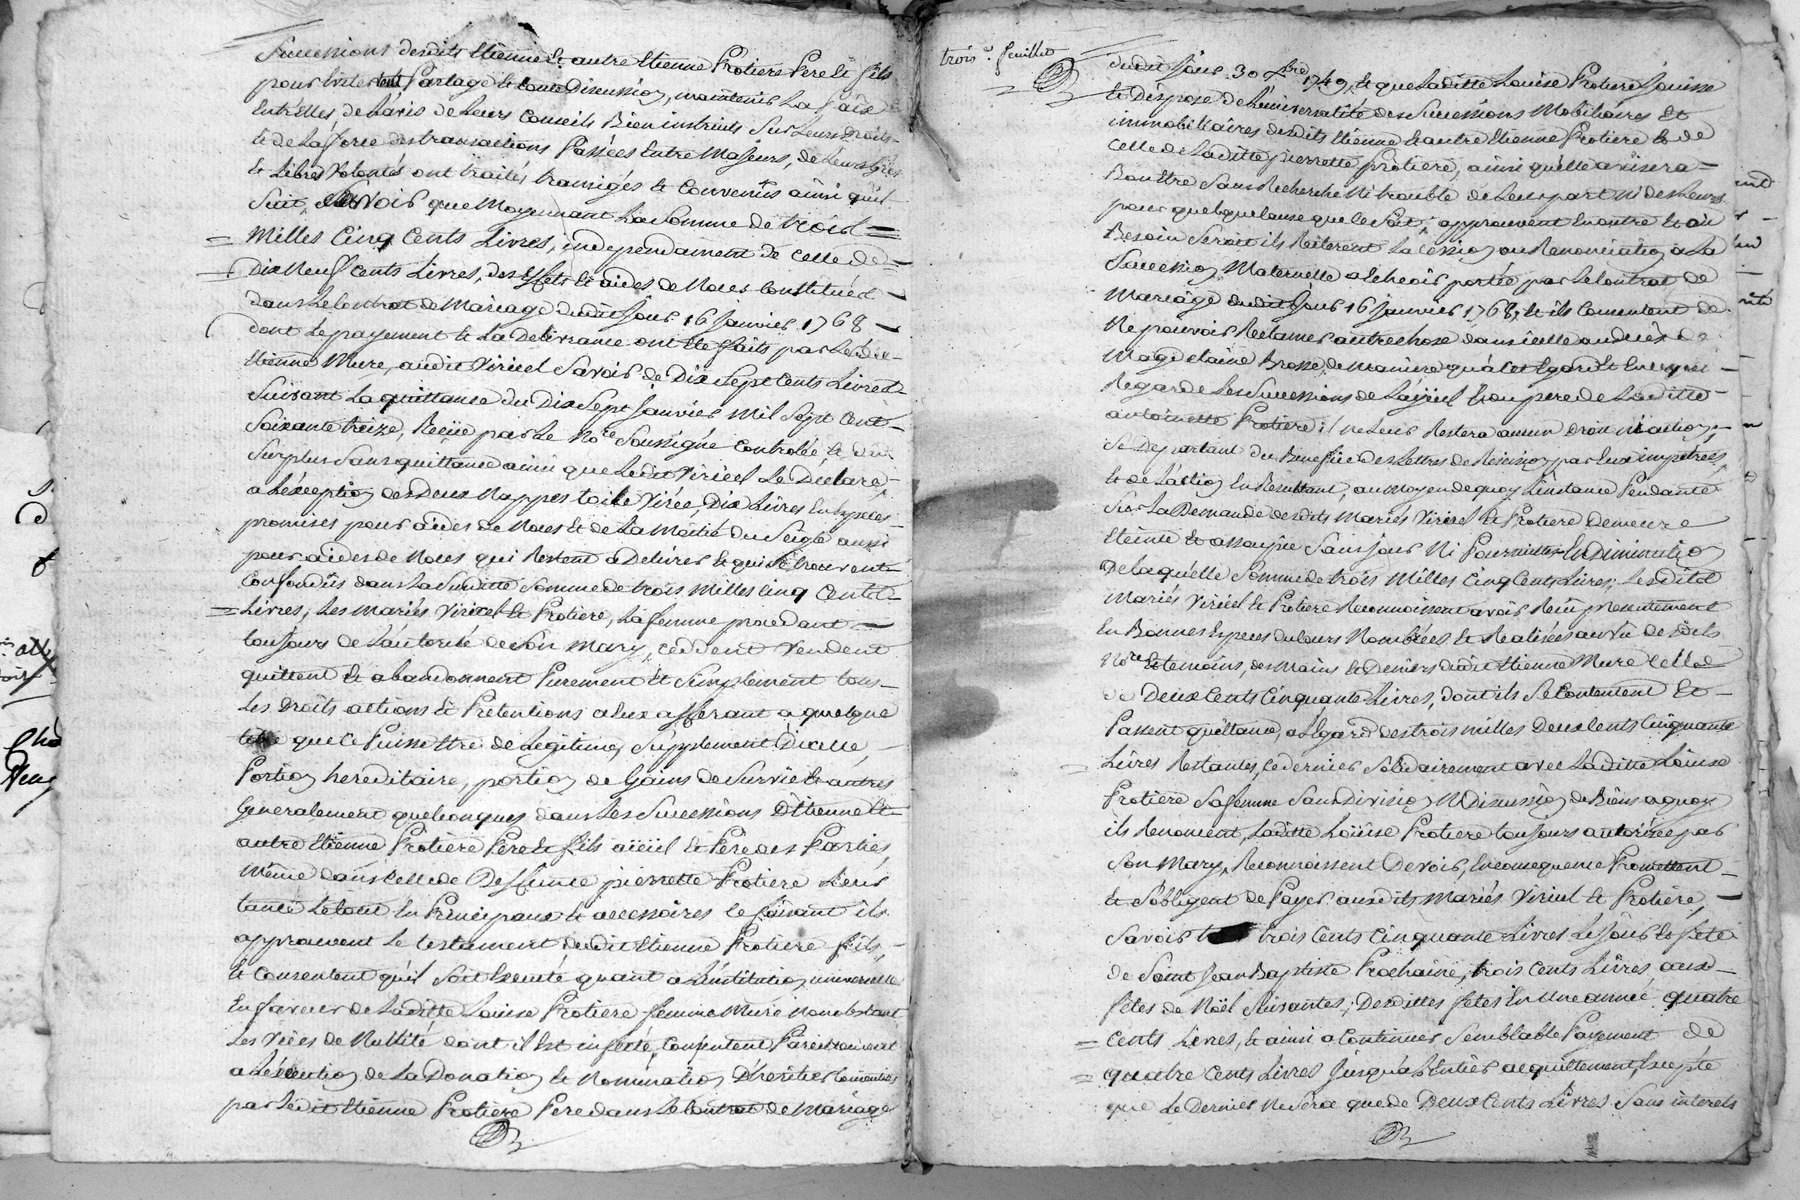 Successions desdits Etienne & autre Etienne Protiere Pere & fils
pour Eviter tout Partage & toute Discussion, maintenir la paix
Entr'Elles, de L'avis de Leurs Conseils Bien instruits sur Leurs Droits
& de La force des transactions Passées Entre Majeurs, de Leurs Grés
& Libres Volontés ont traités transigés & Convenus ainsi qu'il
Suit, Savoir que Moyennant La Somme de trois
Milles Cinq Cents Livres, independament de celle de
Dix Neuf Cents Livres, des Effets & aides de Noces Constitués
dans Le Contrat de Mariage dudit Jour 16 Janvier 1768
dont Le payement & La Delivrance ont Eté faits par Ledit
Etienne Mure, audit Viricel Savoir de Dix Sept Cents Livres
Suivant La quittance du Dix Sept Janvier Mil Sept Cent
Soixante treize, Reçüe par Le Nore Soussigné Controlée & du
Surplus Sans quittance ainsi que Ledit Viricel Le Declare,
a L'exception des Deux Nappes toile Virée, Dix Livres En Especes
promises pour aides de Noces Et de La Moitié du Seigle aussi
pour aides de Noces qui Restent a Delivrer & qui se trouvent
Confondus dans La Susditte Somme de trois Milles Cinq Cents
Livres, Les Mariés Viricel & Protiere, La femme procedant
toujours de L'autorité de Son Mary, Cedent Vendent
quittent Et abandonnent Purement & Simplement tous
Les Droits actions & Pretentions a Eux afferant a quelque
titre que ce Puisse Etre de Legitime, Supplement D'icelle,
Portion hereditaire, portion de Gains de Survie & autres
Generalement quelconques dans Les Successions D'Etienne &
autre Etienne Protiere Pere & fils aïeul & Pere des Parties
Même dans Celle de Deffunte pierrette Protiere Leur
tante Le tout En Principaux & accessoires Ce faisant ils
approuvent Le testament dudit Etienne Protiere fils,
& Consentent qu'il Soit Executé quant a L'institution universelle
En faveur de Laditte Louise Protiere femme Mure nonobstant
Les Vices de Nullité dont il Est infecté, Consentent Pareillement
a L'Execution de La Donation & Nomination D'heritier
par Ledit Etienne Protiere Pere dans Le Contrat de Mariage
trois.e feuillet
dudit Jour 30 Xbre 1749, & que Laditte Louise Protiere Jouisse
& Dispose de L'universalité des Successions Mobiliaires Et
immobiliaires desdits Etienne & autre Etienne Protiere & de
Celle de Laditte pierrette Protiere, ainsi qu'elle avisera
Bon Etre Sans Recherche Ni trouble de Leur part Ni des Leurs
pour quelque Cause que Ce Soit; approuvent En outre & où
Besoin Seroit ils Reiterent La Cession ou Renonciation a La
Succession Maternelle a Echeoir portée par Le Contrat de
Mariage dudit Jour 16 Janvier 1768, & ils Consentent de
Ne pouvoir Reclamer autre chose dans icelle
Magdelaine Brosse, de Maniere qu'a Cet Egard Et En ce qui
Regarde Les Successions de L'ayeul & du pere de Laditte
antoinette Protiere il Ne Leur Restera aucun Droit Ni action,
Se Departant du Benefice des Lettres de Rescision par Eux impetrées
& de L'action En Resultant, au Moyen de quoy L'instance Pendante
Sur La Demande desdits Mariés Viricel & Protiere Demeure
Eteinte & assoupie Sans Jour Ni Poursuittes En Diminution
De Laquelle Somme de trois Milles Cinq Cents Livres; Lesdits
Mariés Viricel & Protiere Reconnoissent avoir Reçû presentement
En Bonnes Especes du Cours Nombrées & Realisées au Vû de
Nore & temoins, des Mains & Deniers dudit Etienne Mure Celle
de Deux Cents Cinquante Livres, dont ils Se Contentent Et
Passent quittance, a L'Egard des trois milles Deux Cents Cinquante
Livres Restantes, Ce dernier Solidairement avec Laditte Loüise
Protiere Sa femme Sans Division Ni Discussion de Biens a quoy
ils Renoncent, Laditte Loüise Protiere toujours autorisée par
Son Mary, Reconnoissent Devoir, En Consequence Promettent
& S'obligent de Payer auxdits Mariés Viricel & Protiere,
Savoir trois Cents Cinquante Livres Le Jour & fete
de Saint Jean Baptiste Prochaine, trois Cents Livres aux
fêtes de Noël Suivantes; Desdittes fetes En Une année quatre
Cents Livres, & ainsi a Continuer Semblable Payement de
quatre Cents Livres Jusqu'a L'Entier acquittement, Excepté
que Le Dernier Ne Sera que de Deux Cents Livres Sans interets